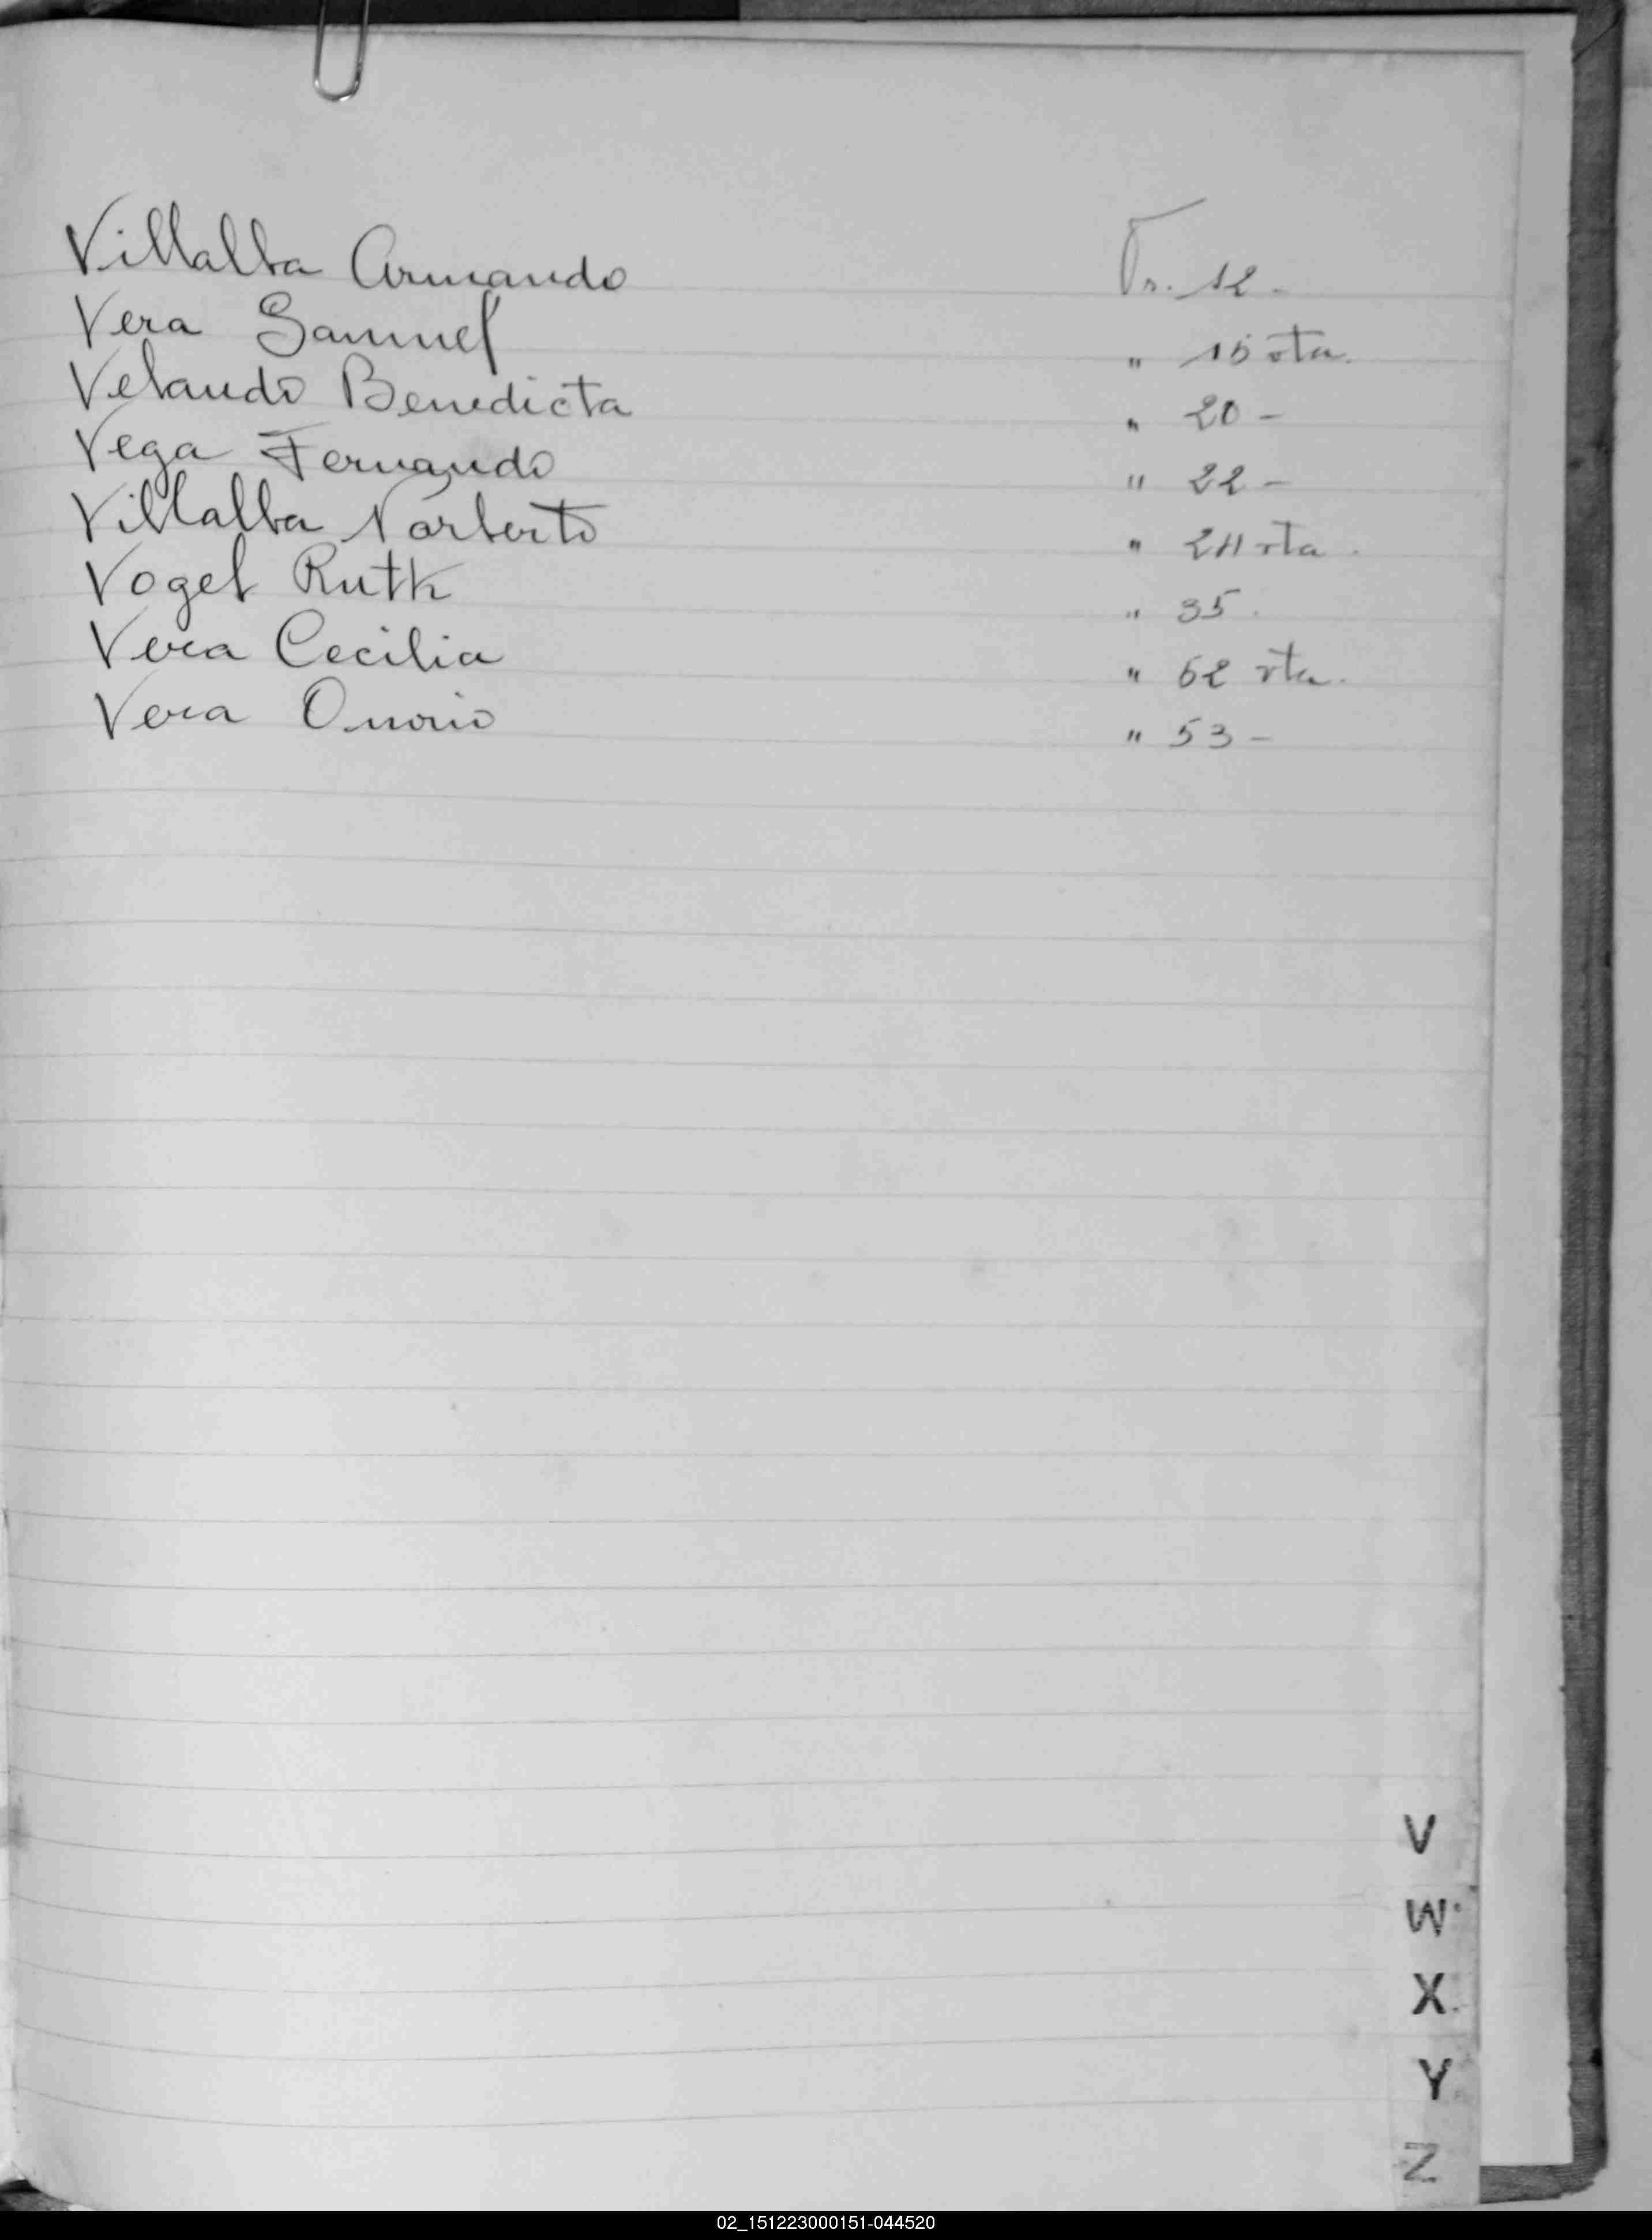 Villalba Armando Fr. 12 -
Vera Samuel " 15 vta.
Velando Benedicta " 20 -
Vega Fernando " 22 -
Villalba Norberto " 24 vta.
Vogel Ruth " 35.
Vera Cecilia " 52 vta.
Vera Onorio " 53 -
V
W
X
Y
Z
02_151223000151-044520